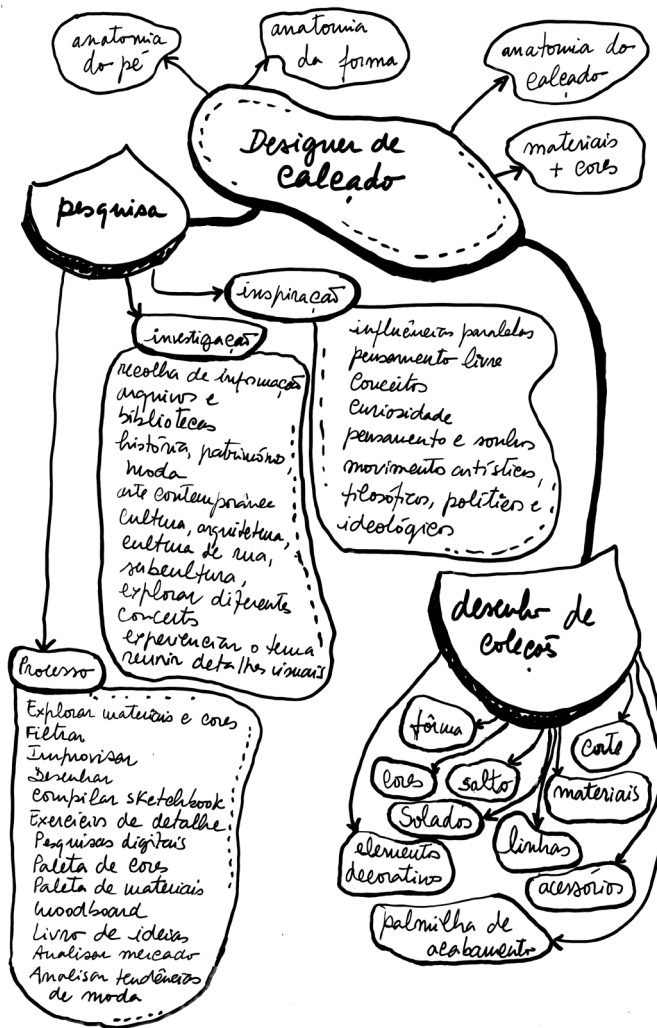 anatomia
do pé
anatomia
da forma
anatomia do
calçado
Designer de
calçado
materiais
+ cores
pesquisa
inspiração
influências paralelas
pensamento livre
conceitos
curiosidade
pensamento e sonhos
movimento artísticos,
filosóficos, políticos e
ideológicos
investigação
recolha de informação
arquivos e
bibliotecas
história, património,
moda
arte contemporânea
cultura, arquitetura,
cultura de rua,
subcultura,
explorar diferentes
conceitos
experienciar o tema
reunir detalhes visuais
Processo
Explorar materiais e cores
Filtrar
Improvisar
Desenhar
compilar sketchbook
Exercícios de detalhe
Pesquisas digitais
Paleta de cores
Paleta de materiais
moodboard
Livro de ideias
Analisar mercado
Analisar tendências
de moda
desenho de
coleção
fôrma
corte
cores
salto
materiais
Solados
linhas
elementos
decorativos
acessórios
palmilha de
acabamento